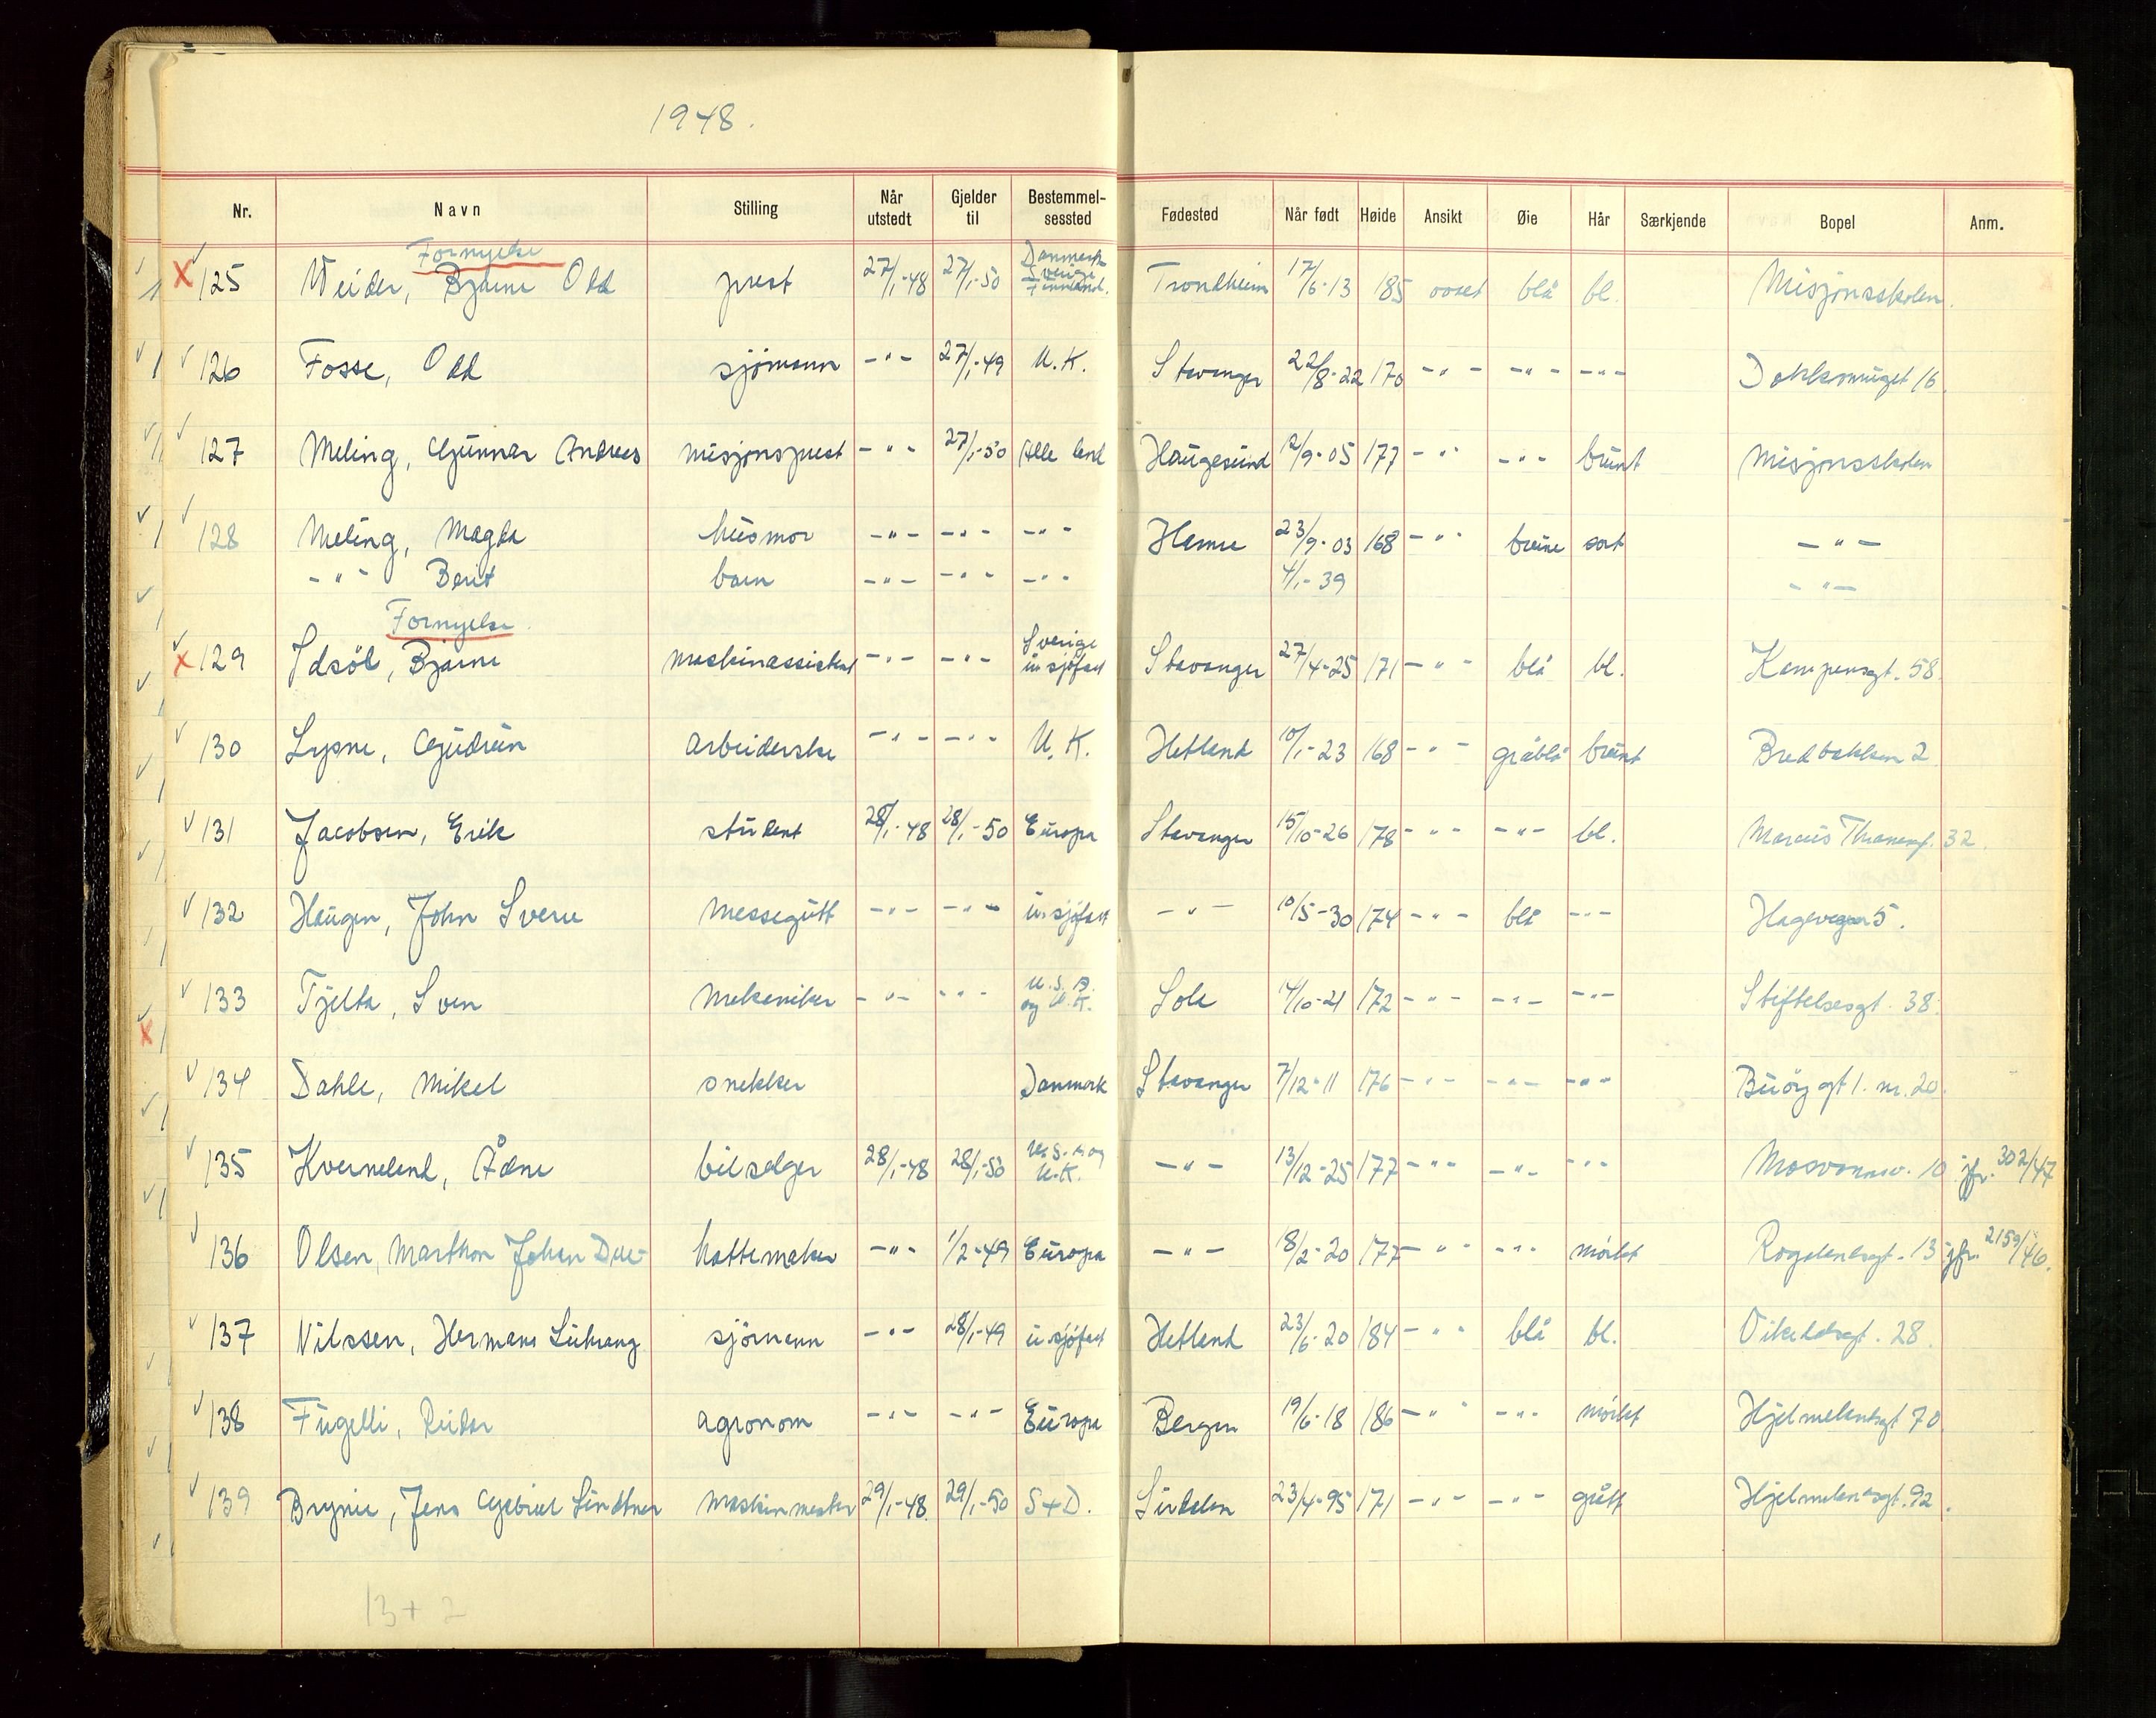 1948.
Nr. Navn Stilling Når utstedt Gjelder til Bestemmel-sessted Fødested Når født Høide Ansikt Øie Hår Særkjende Bopel Anm.
Fornyelse
X 125 Weider, Bjarne Odd prest 27/1-48 27/1-50 Danmark Sverige Finnland. Trondheim 17/6-13 185 ovalt blå bl. Misjonsskolen.
126 Fosse, Odd sjömann -"- 27/1-49 U.K. Stavanger 22/8-22 170 -"- -"- -"- 16.
127 Meling, Gunnar Andreas misjonsprest -"- 27/1-50 Alle land Haugesund 12/9-05 177 -"- -"- brunt Misjonsskolen
128 Meling, Magda husmor -"- -"- -"- 23/9-03 168 -"- brune sort -"-
-"- Berit barn -"- -"- -"- 4/1-39 -"-
Fornyelse
X 129 Idsöe, Bjarne maskinassistent -"- -"- Sverige u. sjöfart Stavanger 27/4-25 171 -"- blå bl. Kampensgt. 58.
130 Lysne, Gudrun arbeiderske -"- -"- U.K. Hetland 10/1-23 168 -"- gråblå brunt Bredbakken 2
131 Jacobsen, Erik student 28/1-48 28/1-50 Europa Stavanger 15/10-26 178 -"- -"- bl. Marcus Thranesgt. 32.
132 Haugen, John Sverre messegutt -"- -"- u. sjöfart -"- 10/5-30 174 -"- blå -"- Hagevegen 5.
133 Tjelta, Sven mekaniker -"- -"- U.S.A. og U.K. Sola 4/10-21 172 -"- -"- -"- Stiftelsesgt. 38.
134 Dahle, Mikal snekker Danmark Stavanger 7/12-11 176 -"- -"- -"- Buöy gt 1. nr. 20.
135 Kverneland, Ådne bilselger 28/1-48 28/1-50 U.S.A og U.K. -"- 13/12-25 177 -"- -"- -"- Mosvannsv. 10 jfr. 302/47
136 Olsen, Marthon Johan Due- hattemaker -"- 1/2-49 Europa -"- 18/2-20 177 -"- -"- mörkt Rogalandsgt. 13 jfr. 2159/46.
137 Nilssen, Hermans sjömann -"- 28/1-49 u. sjöfart Hetland 23/6-20 184 -"- blå bl. 28.
138 Fugelli, Reidar agronom -"- -"- Europa Bergen 19/6-18 186 -"- -"- mörkt Hjelmelandsgt 70.
139 Bryne, Jens Gabriel Lindtner maskinmester 29/1-48. 29/1-50 S+D. Sirdalen 23/4-95 171 -"- -"- grått Hjelmelandsgt. 92.
13+2